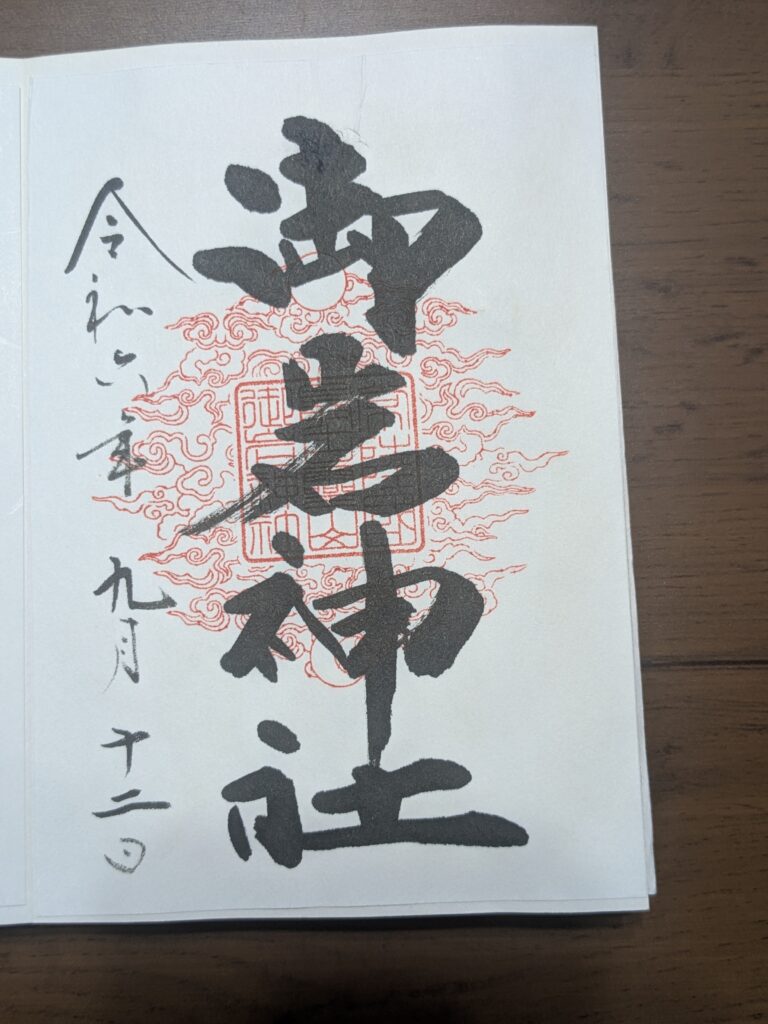 御岩神社
令和六年 九月十二日